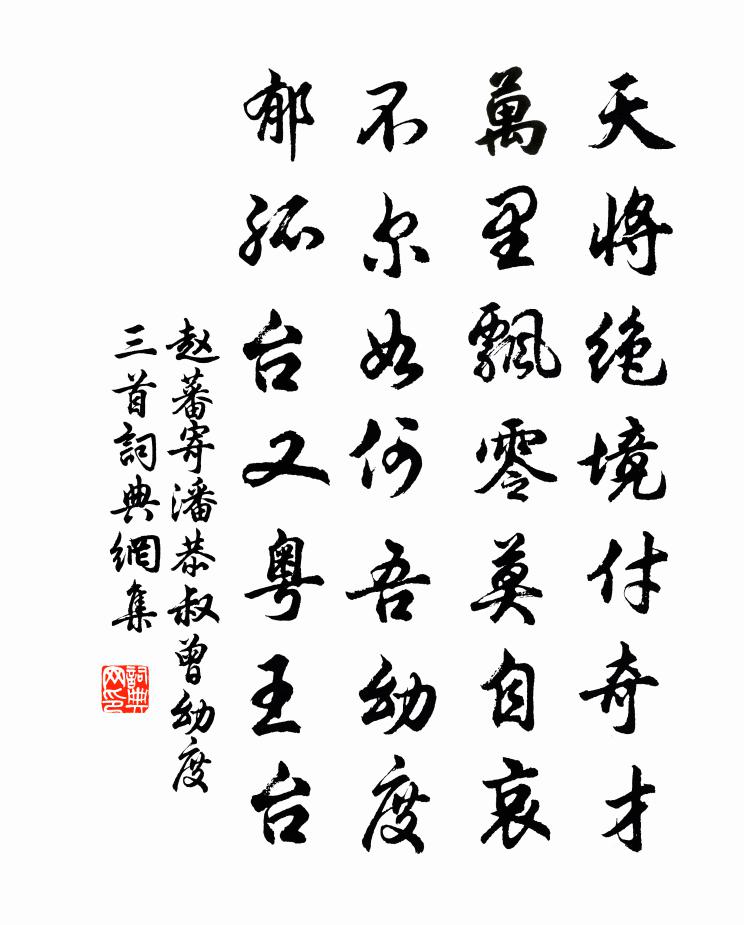 天将绝境付奇才
萬里飄零莫自哀
不尔如何吾幼度
郁孤台又粤王台
赵蕃寄潘恭叔曾幼度
三首詞典網集
詞典
网印